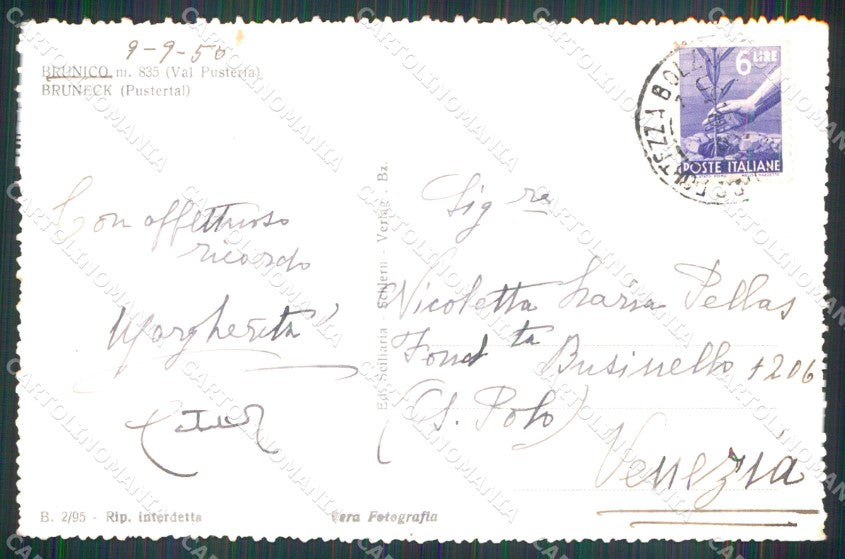 9-9-50
BRUNICO m. 835 (Val Pusteria)
BRUNECK (Pustertal)
Con affettuoso
ricordo
Margherita
B. 2/95 - Rip. interdetta
Vera Fotografia
Ed. Sciliaria - Schlern - Verlag - Bz.
6 LIRE
POSTE ITALIANE
Sig ra
Nicoletta Pellas
Fond ta Businello 1206
(S. Polo)
Venezia
CARTOLINOMANIA